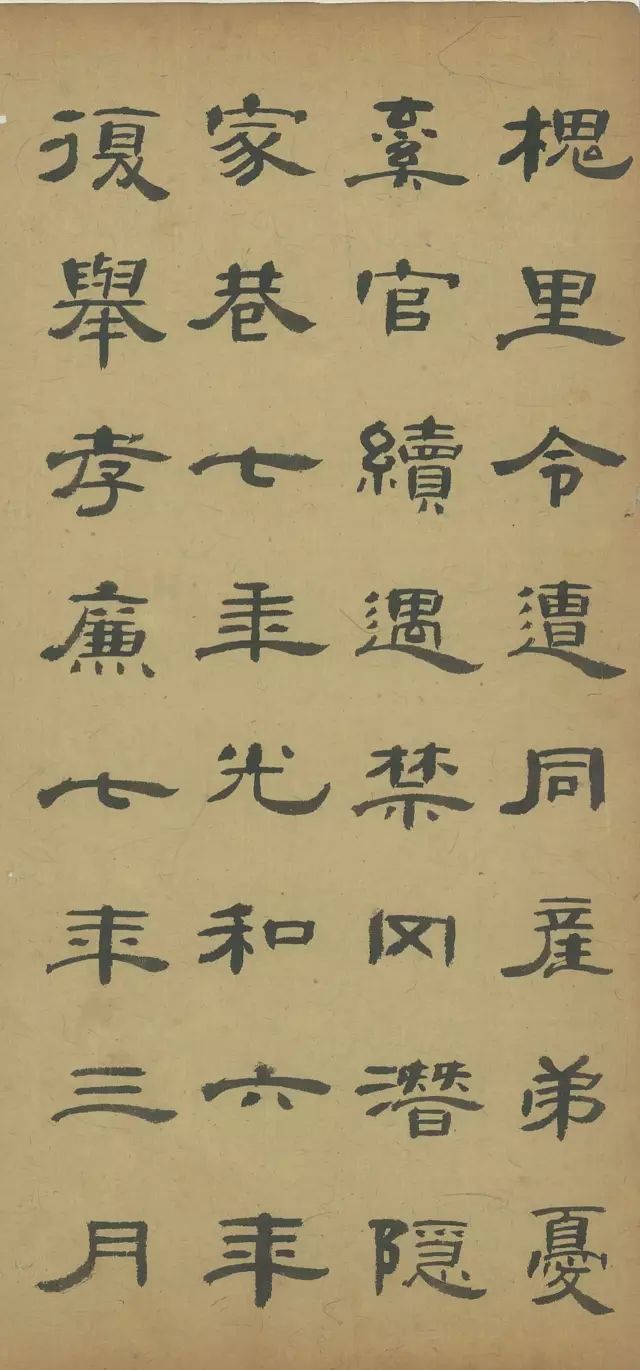 槐里令遭同產弟憂
棄官續遇禁冈潛隱
家巷七年光和六年
復舉孝廉七年三月